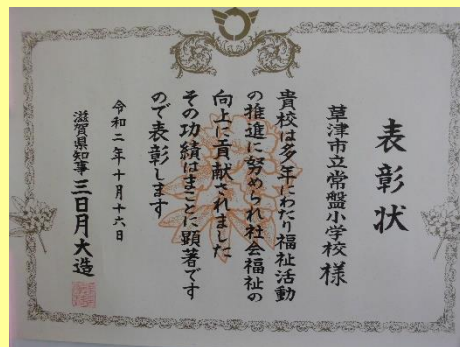 表彰状
草津市立常盤小学校様
貴校は多年にわたり福祉活動
の推進に努められ社会福祉の
向上に貢献されました
その功績はまことに顕著です
ので表彰します
令和二年十月十六日
滋賀県知事 三日月大造